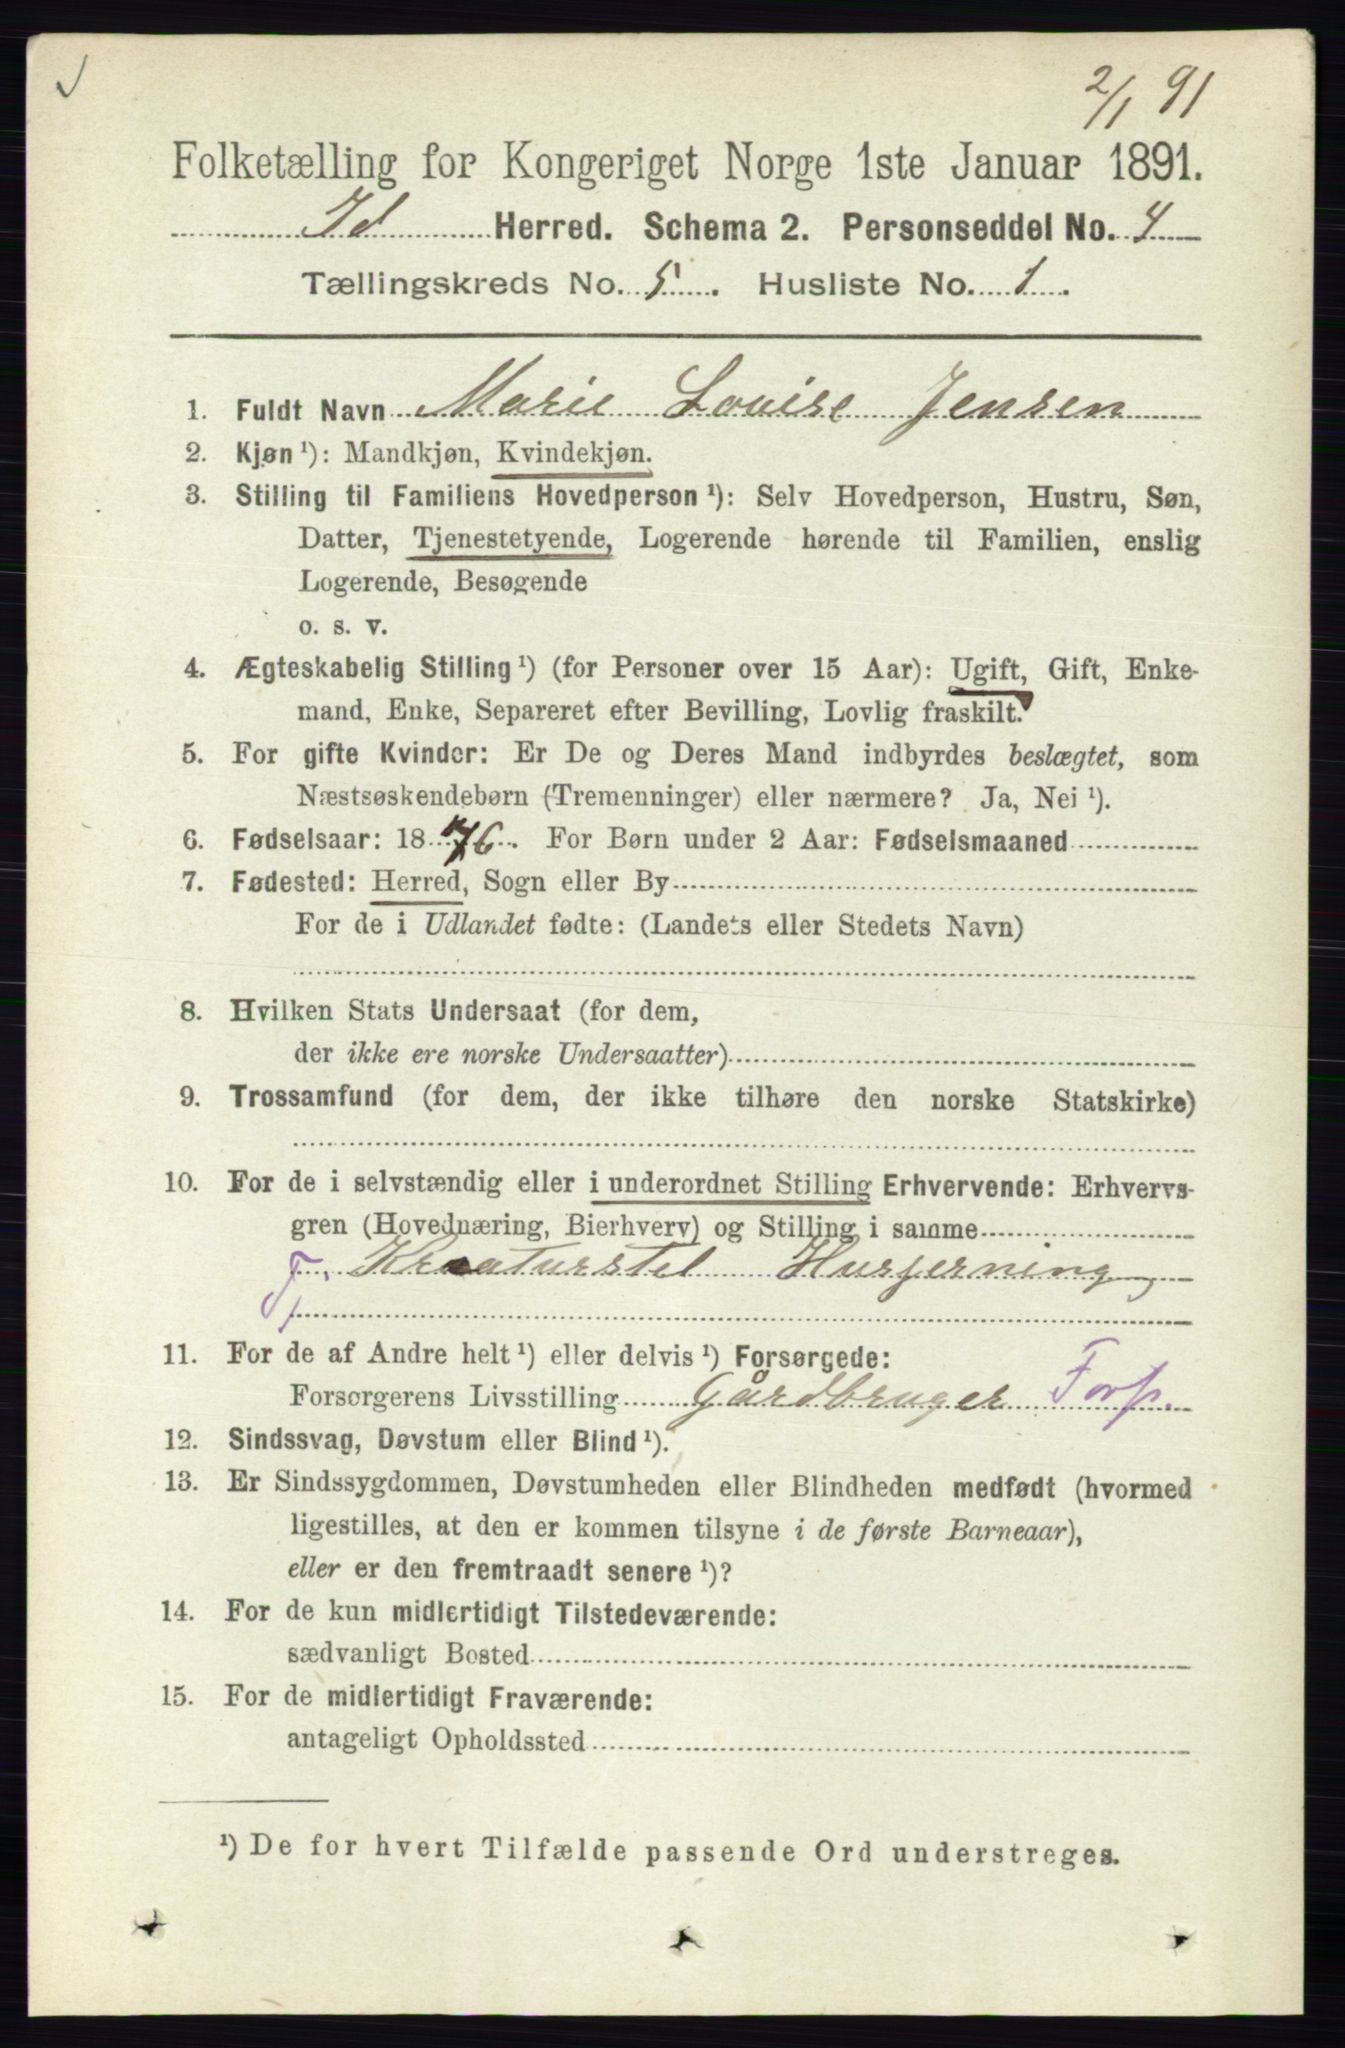 2/1 91
Folketælling for Kongeriget Norge 1ste Januar 1891.
Id Herred. Schema 2. Personseddel No. 4
Tællingskreds No. 5. Husliste No. 1.
1. Fuldt Navn Marie Louise Jensen
2. Kjøn ¹): Mandkjøn, Kvindekjøn.
3. Stilling til Familiens Hovedperson ¹): Selv Hovedperson, Hustru, Søn,
Datter, Tjenestetyende, Logerende hørende til Familien, enslig
Logerende, Besøgende
o. s. v.
4. Ægteskabelig Stilling ¹) (for Personer over 15 Aar): Ugift, Gift, Enke-
mand, Enke, Separeret efter Bevilling, Lovlig fraskilt.
5. For gifte Kvinder: Er De og Deres Mand indbyrdes beslægtet, som
Næstsøskendebørn (Tremenninger) eller nærmere? Ja, Nei ¹).
6. Fødselsaar: 1876. For Børn under 2 Aar: Fødselsmaaned
7. Fødested: Herred, Sogn eller By
For de i Udlandet fødte: (Landets eller Stedets Navn)
8. Hvilken Stats Undersaat (for dem,
der ikke ere norske Undersaatter)
9. Trossamfund (for dem, der ikke tilhøre den norske Statskirke)
10. For de i selvstændig eller i underordnet Stilling Erhvervende: Erhvervs-
gren (Hovednæring, Bierhverv) og Stilling i samme
Tj. Kreaturstel Husgjerning
11. For de af Andre helt ¹) eller delvis ¹) Forsørgede:
Forsørgerens Livsstilling Gårdbruger Forp.
12. Sindssvag, Døvstum eller Blind ¹).
13. Er Sindssygdommen, Døvstumheden eller Blindheden medfødt (hvormed
ligestilles, at den er kommen tilsyne i de første Barneaar),
eller er den fremtraadt senere ¹)?
14. For de kun midlertidigt Tilstedeværende:
sædvanligt Bosted
15. For de midlertidigt Fraværende:
antageligt Opholdssted
¹) De for hvert Tilfælde passende Ord understreges.